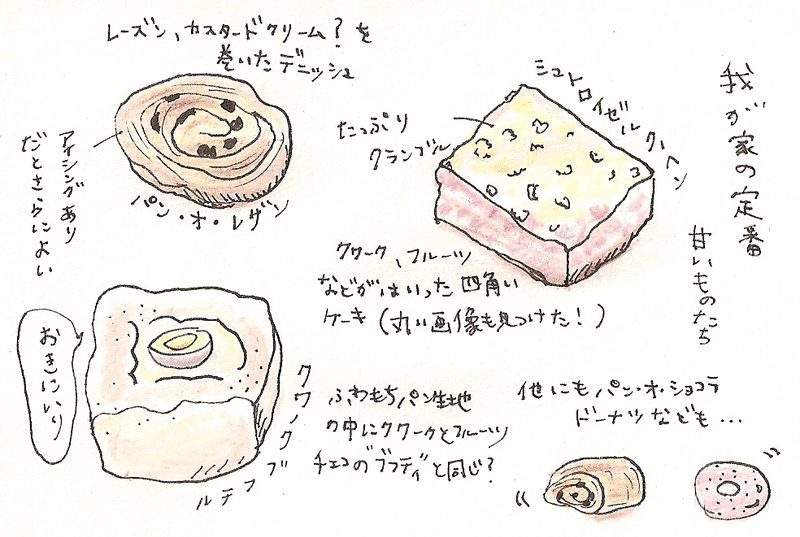 我が家の定番
甘いものたち
レーズン、カスタードクリーム?を
巻いたデニッシュ
アイシングあり
だとさらによい
パン・オ・レザン
シュトロイゼルクーヘン
たっぷり
クランブル
クワーク、フルーツ
などがはいった四角い
ケーキ(丸い画像も見つけた!)
おきにいり
クワークブフテル
ふわもちパン生地
の中にクワークとフルーツ
チェコのブフティと同じ?
他にもパン・オ・ショコラ
ドーナツなども...